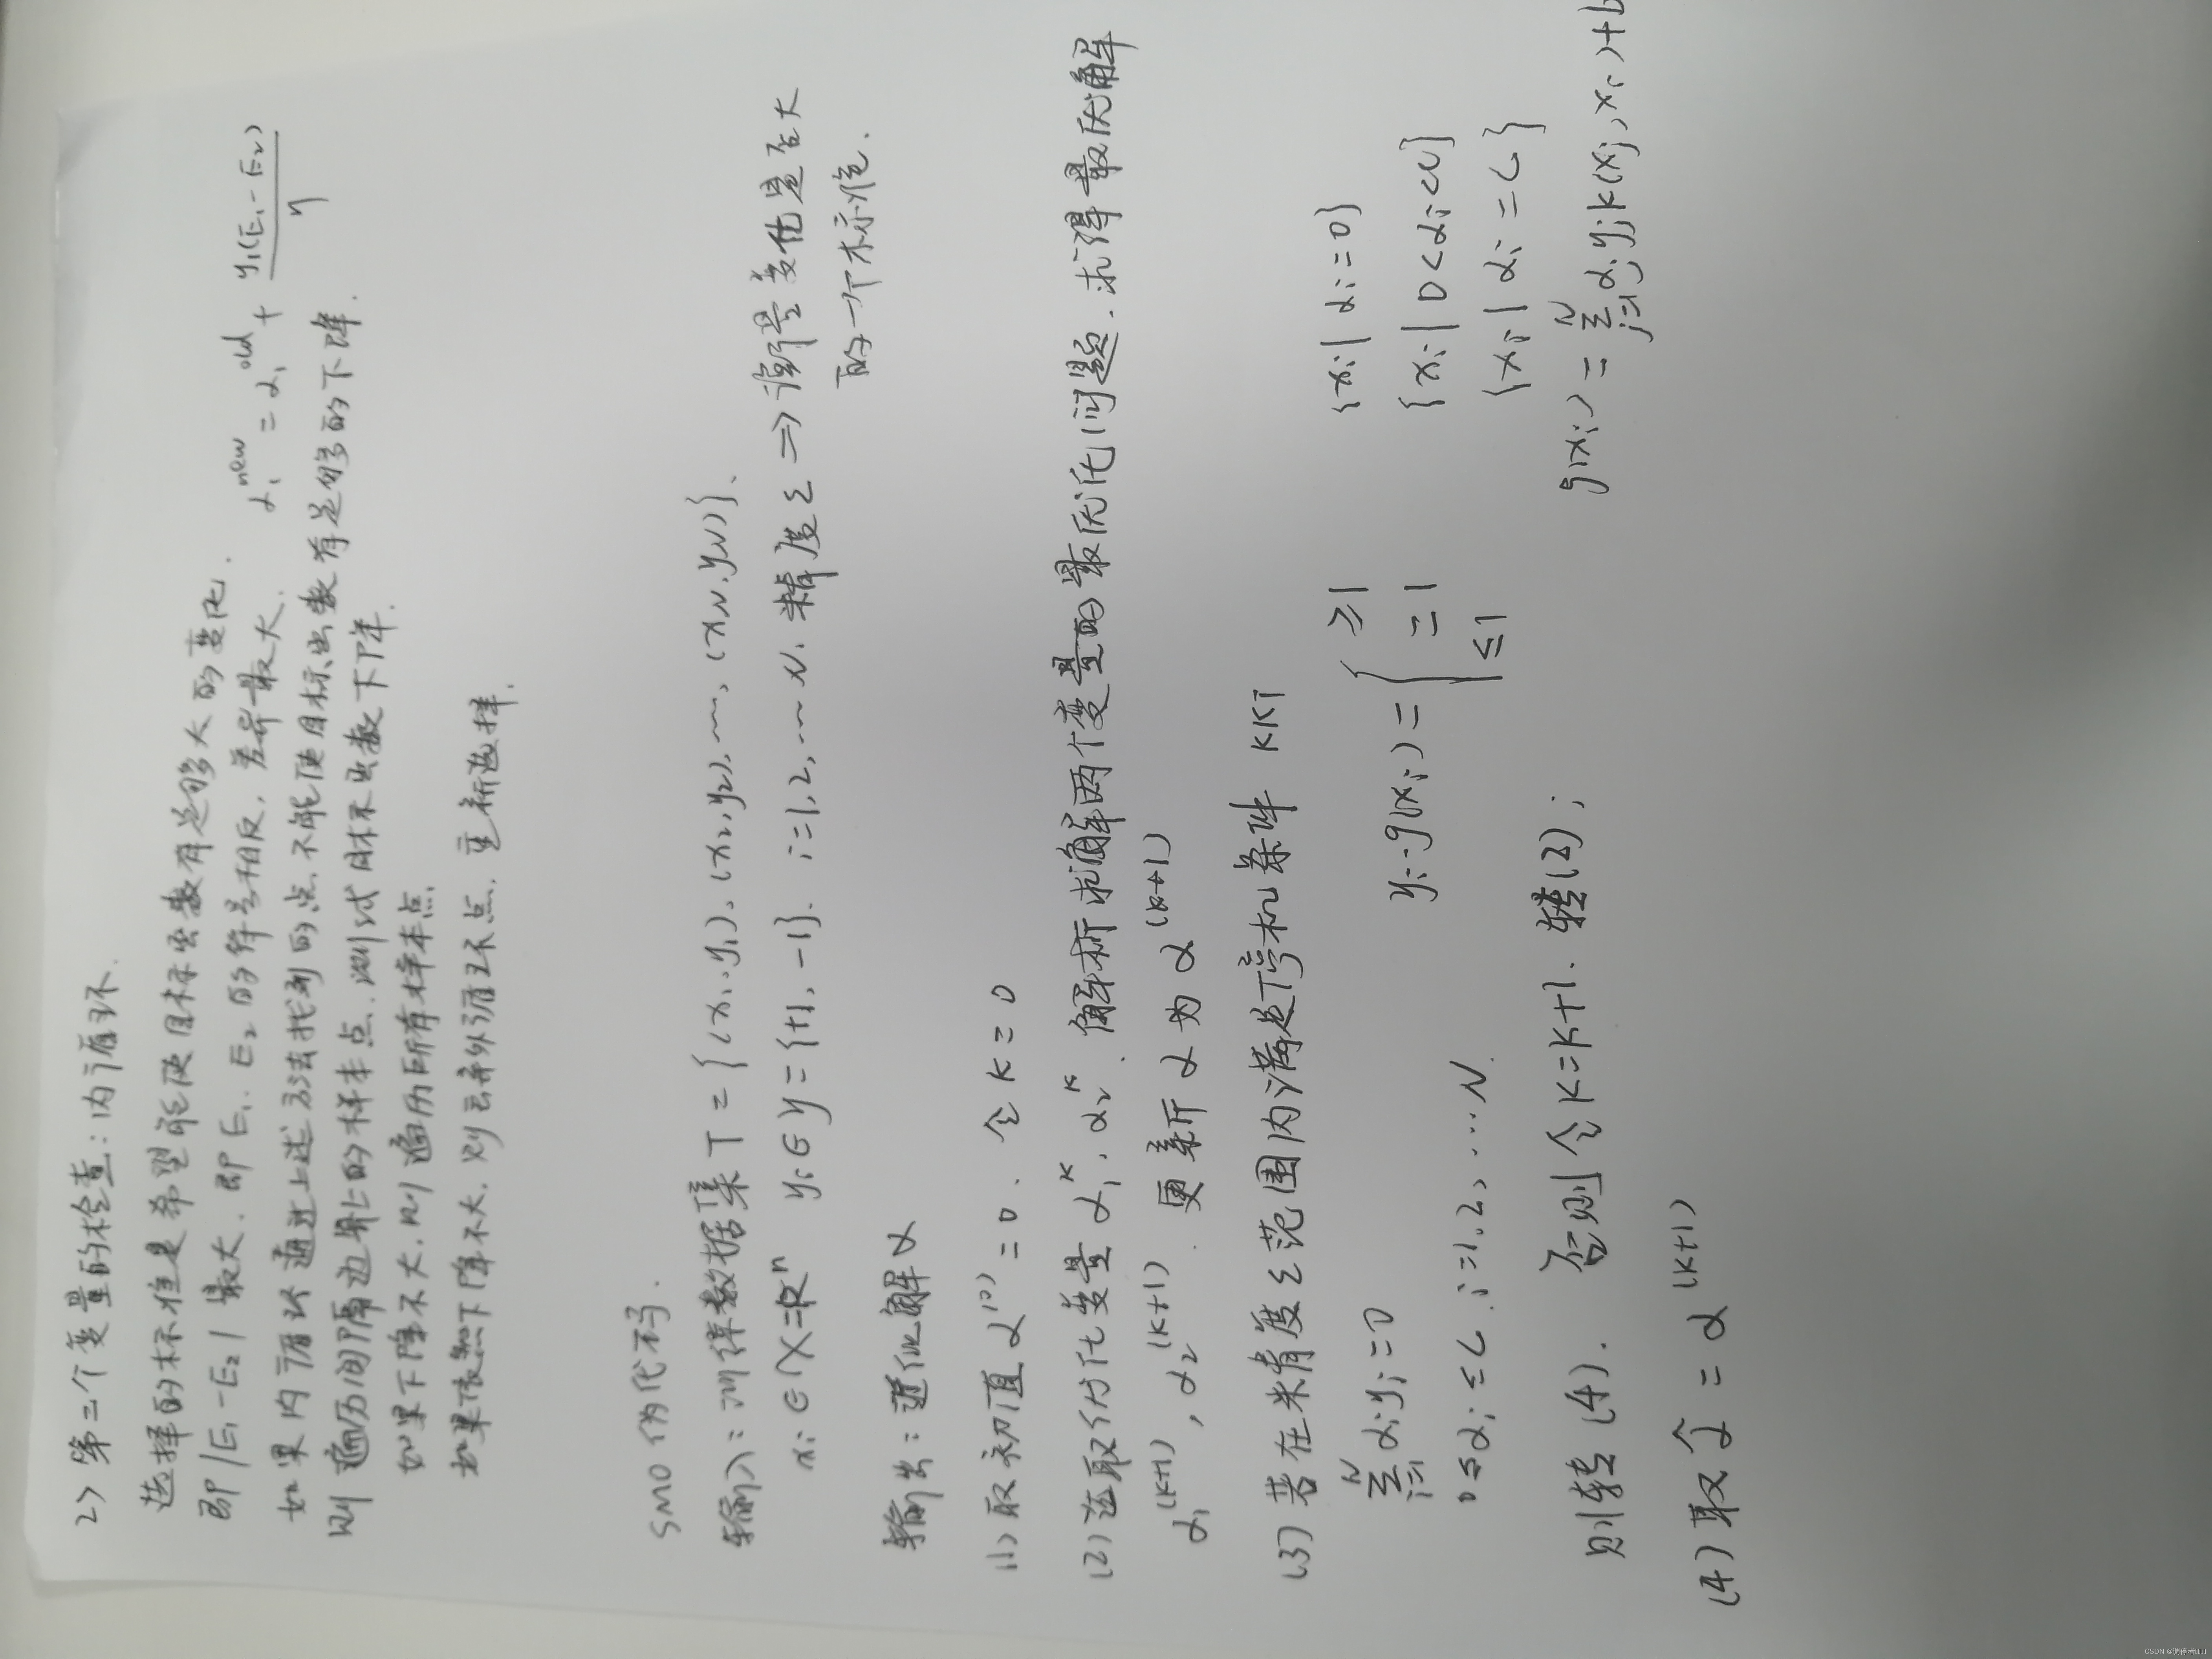 2) 第二个变量的检查:内循环.
选择的标准是希望能使目标函数有足够大的变化.
即|E₁-E₂|最大. 即E₁. E₂的符号相反, 差异最大. α₁ⁿᵉʷ = α₁ᵒˡᵈ + y₁(E₁-E₂)/η
如果内循环通过上述方法找到的点, 不能使目标函数有足够的下降.
则遍历间隔边界上的样本点, 测试目标函数下降.
如果下降不大, 则遍历所有样本点
如果依然下降不大, 则丢弃外循环点. 重新选择.
SMO伪代码.
输入: 训练数据集T={(x₁,y₁),(x₂,y₂),…,(x_N,y_N)}.
xᵢ∈X=Rⁿ yᵢ∈y={+1,-1}. i=1,2,…N. 精度ε ⇒ 衡量变化是否大
的一个标准.
输出: 近似解α
(1) 取初值α⁽⁰⁾=0. 令k=0
(2) 选取优化变量α₁ᵏ, α₂ᵏ. 解析求解两个变量的最优化问题. 求得最优解
α₁⁽ᵏ⁺¹⁾, α₂⁽ᵏ⁺¹⁾. 更新α为α⁽ᵏ⁺¹⁾
(3) 若在精度ε范围内满足停机条件 KKT
Σᵢ₌₁ᴺ αᵢyᵢ=0 yᵢ·g(xᵢ)={ ≥1 {xᵢ|αᵢ=0}
=1 {xᵢ|0<αᵢ<C}
0≤αᵢ≤C. i=1,2,…,N. ≤1 {xᵢ|αᵢ=C}
则转(4). 否则令k=k+1. 转(2); g(xᵢ)=Σⱼ₌₁ᴺ αⱼyⱼk(xⱼ,xᵢ)+b
(4) 取α̂=α⁽ᵏ⁺¹⁾
CSDN